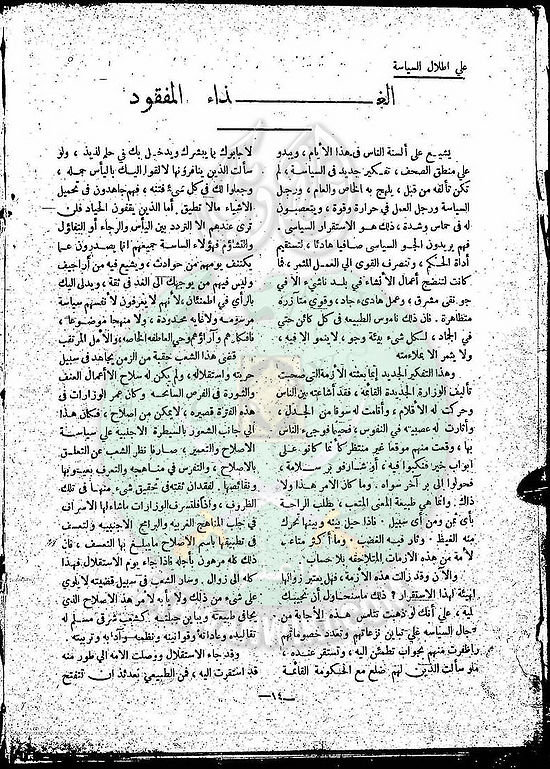 على اطلال السياسة
الغـــــــــذاء المفقود
يشيـع على ألسنة الناس فى هذا الأيام ، ويبدو
على منطق الصحف، تفكير جديد فى السياسة ، لم
تكن تألفه من قبل، يلهج به الخاص والعام ، ورجل
السياسة ورجل العمل فى حرارة وقوة ، ويتعصبون
له فى حماس وشدة ، ذلك هو الاستقرار السياسى .
فهم يريدون الجو السياسى صافيا هادئا ، لتستقيم
أداة الحكم ، وتنصرف القوى الى العمل المثمر ، فما
كانت لتنضج أعمال الانشاء فى بلد ناشىء الا فى
جو نقى مشرق ، وعمل هادىء جاد ، وقوى متآزرة
متظاهرة . فان ذلك ناموس الطبيعه فى كل كائن حتى
فى الجماد ، لكل شىء بيئة وجو ، لا ينمو الا فيه ،
ولا يثمر الا بملاءمته
وهذا التفكير الجديد إنما بعثته الأزمة التى صحبت
تأليف الوزارة الجديدة القائمة ، فقد أشاعته بين الناس
وحركت له الأقلام ، وأقامت له سوقا من الجدل ،
وأثارت له عصبية فى النفوس ، فحينما فوجىء الناس
بها ، وقعت منهم موقعا غير منتظر كأنما كانوا على
أبواب خير فنكبوا فيه ، أو شارفوا بر سلامة ،
فحولوا الى بر آخر سواه . وما كان الامر هذا ولا
ذلك . وانما هى طبيعة المعنى المتعب ، يطلب الراحة
بأى ثمن ومن أى سبيل . فاذا حيل بينه وبينها تحرك
منه الغيظ . وثار فيه الغضب . وما أكثر متاعب
لأمة من هذه الازمات المتلاحقه بلا حساب .
والآن وقد زالت هذه الأزمة ، فهل يعتبر زوالها
تهيئة لهذا الاستقرار ؟ ذلك ما سنحاول أن نجيبك
عليه ، على أنك لو ذهبت تلتمس هذه الأجابة من
رجال السياسه على تباين نزعاتهم وتعدد خصوماتهم
ما ظفرت منهم بجواب تطمئن اليه ، وتستقر عنده ،
فلو سألت الذين لهم ضلع مع الحكومة القائمة
لأجابوك بما يبشرك ويدخل بك فى حلم لذيذ ، ولو
سألت الذين يناوئونها لألقوا اليك باليأس جمله ،
وجعلوا لك فى كل شىء فتنه ، فهم جاهدون فى تحميل
الأشياء مالا تطيق . أما الذين يقفون الحياد فلن
ترى عندهم الا التردد بين اليأس والرجاء أو التفاؤل
والتشاؤم فهؤلاء الساسة جميعهم انما يصدرون عما
يكتنف يومهم من حوادث ، ويشيع فيه من أراجيف
وليس فيهم من يوجهك الى الغد فى ثقة ، ويدلى اليك
بالرأى فى اطمئنان ، لأنهم لا يعرفون لأنفسهم سياسة
مرسومه ولا غايه محدودة ، ولا منهجا موضوعا ،
فأفكارهم وآراؤهم وحى العاطفه الخاصه، والأمل المرتقب
قضى هذا الشعب حقبة من الزمن يجاهد فى سبيل
حريته واستقلاله، ولم يكن له سلاح الا أعمال العنف
والثورة فى الفرص السانحة وكان عمر الوزارات فى
هذه الفترة قصيره ، لا يمكن من إصلاح ، فكان هذا
الى جانب الشعور بالسيطرة الاجنبيه على سياسة
الاصلاح والتعمير ، صارفا نظر الشعب عن التعلق
بالاصلاح ، والتفرس فى مناهجه والتعرف بعيوبها
ونقائصها . لفقدان ثقته فى تحقيق شىء منها فى تلك
الظروف ، واذا فلتسرف الوزارات ما شاء لها الاسراف
فى جلب المناهج الغربيه والبرامج الأجنبيه ولتعسف
فى تطبيقها باسم الاصلاح ما يبلغ بها التعسف ، فان
ذلك كله مرهون بأجله فاذا جاء يوم الاستقلال فهذا
كله الى زوال . وسار الشعب فى سبيل قضيته لا يلوى
على شىء من ذلك ولا يأبه لأمر هذ الاصلاح الذى
يجافى طبيعته ويباين جبلته . كشعب شرقى مسلم له
تقاليده وعاداته وقوانينه ونظمه وآدابه وتربيته .
وقد جاء الاستقلال ووصلت الأمه الى طور منه
قد استقرت اليه ، فمن الطبيعى بعدئذ ان تنفتح
—١٤—